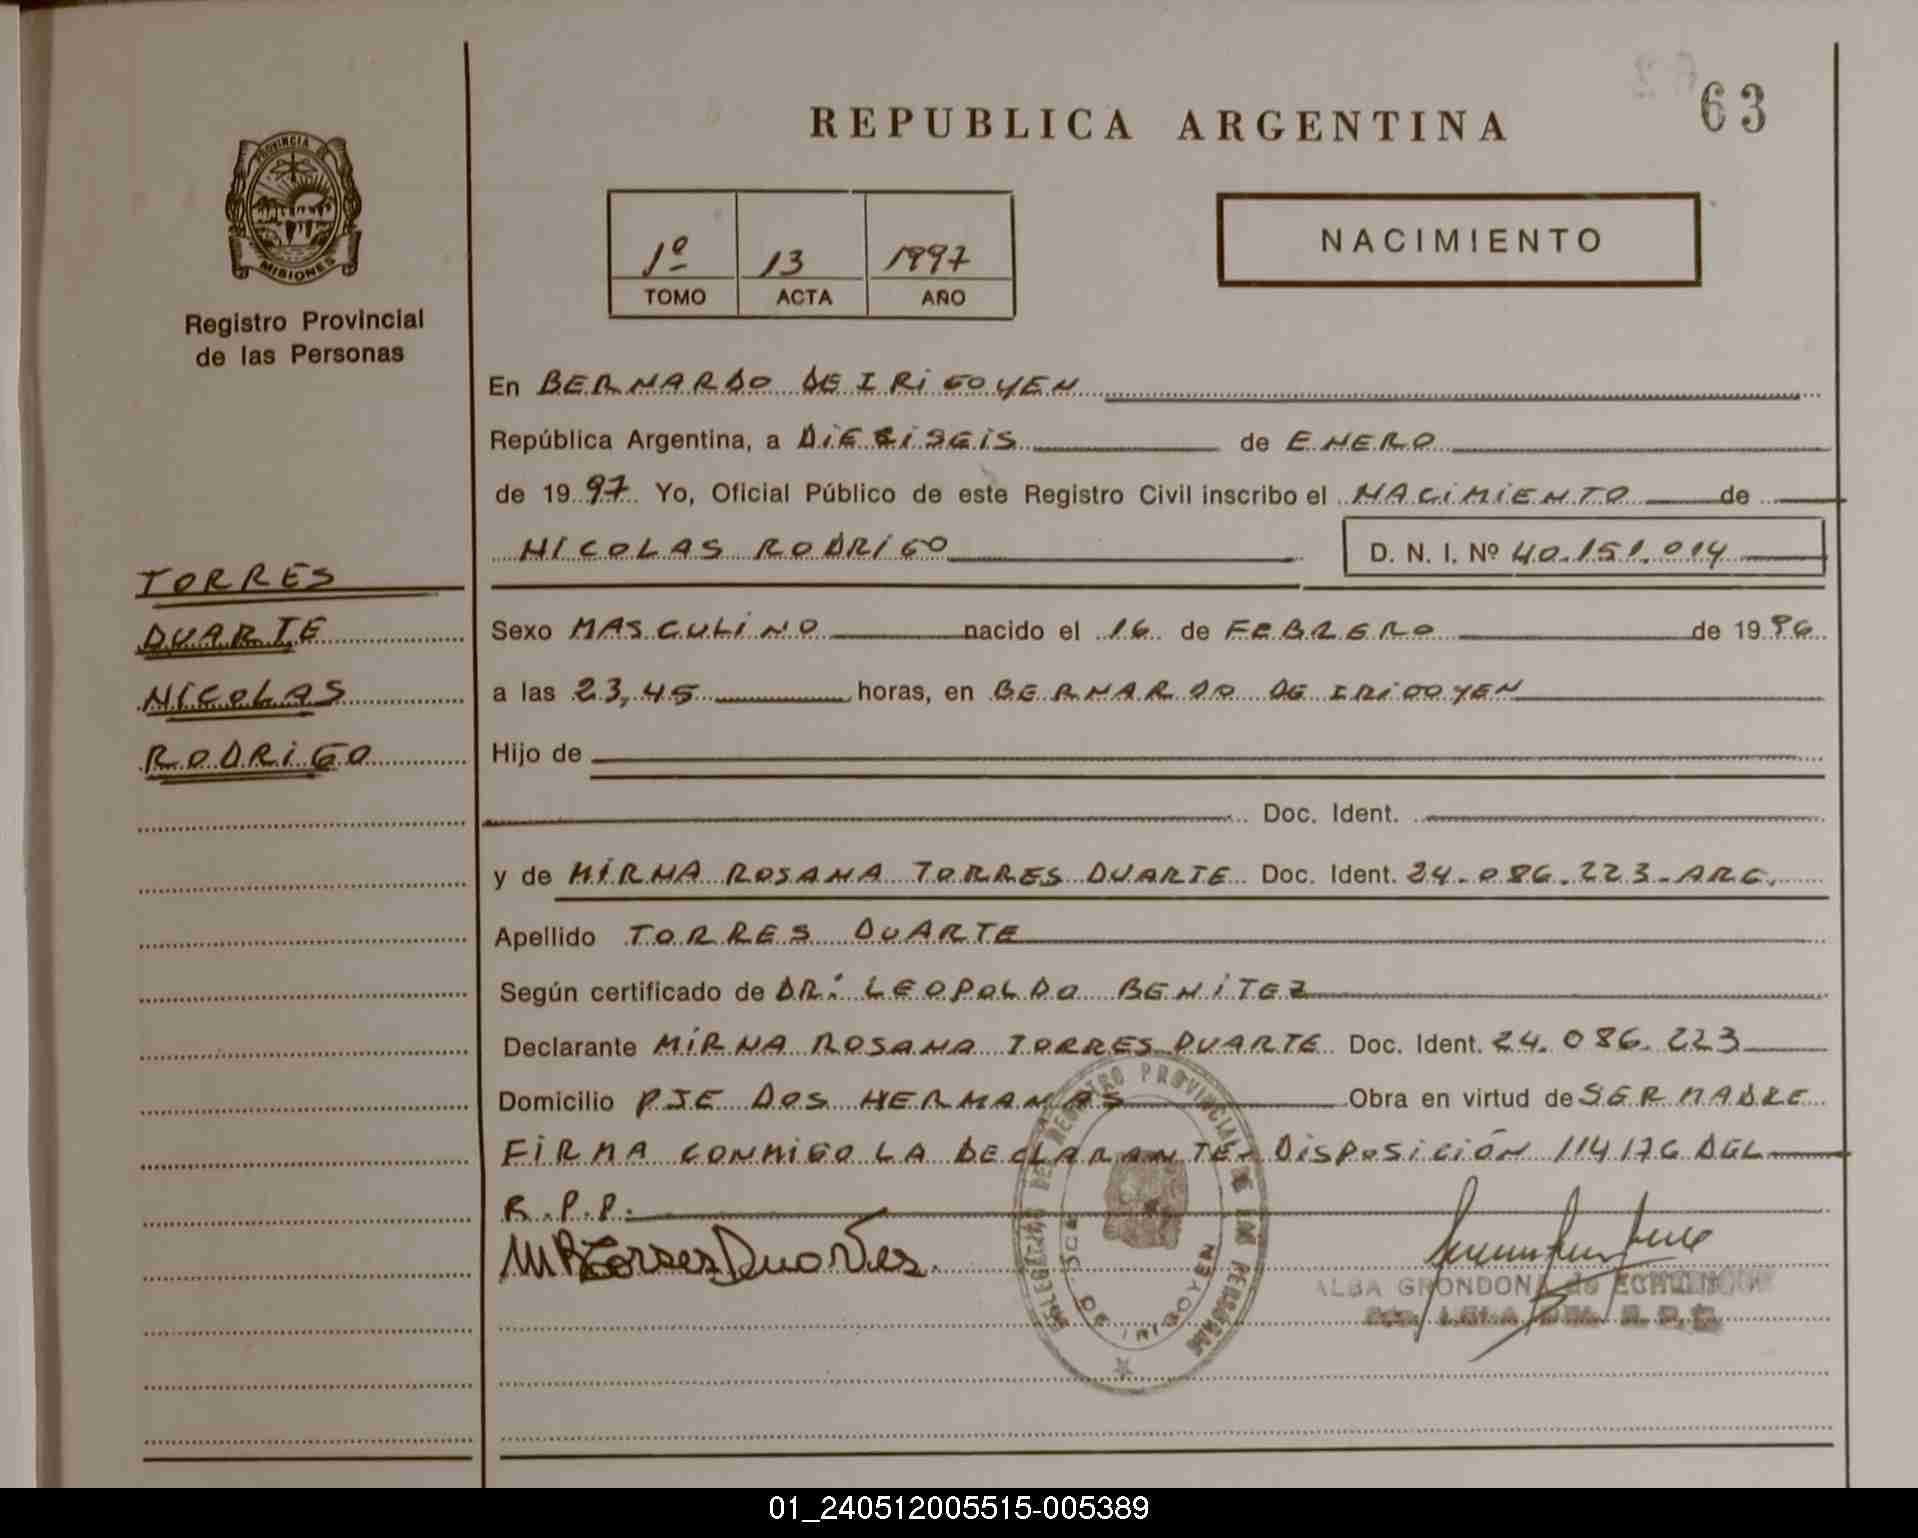 63
REPUBLICA ARGENTINA
PROVINCIA DE
MISIONES
Registro Provincial
de las Personas
1º 13 1997
TOMO ACTA AÑO
NACIMIENTO
En BERNARDO DE IRIGOYEN
República Argentina, a DIECISEIS de ENERO
de 1997 Yo, Oficial Público de este Registro Civil inscribo el NACIMIENTO de
NICOLAS RODRIGO D. N. I. Nº 40.151.014
TORRES
DUARTE
NICOLAS
RODRIGO
Sexo MASCULINO nacido el 16 de FEBRERO de 1996
a las 23,45 horas, en BERNARDO DE IRIGOYEN
Hijo de
Doc. Ident.
y de MIRNA ROSANA TORRES DUARTE Doc. Ident. 24.086.223-ARG.
Apellido TORRES DUARTE
Según certificado de DR: LEOPOLDO BENITEZ
Declarante MIRNA ROSANA TORRES DUARTE Doc. Ident. 24.086.223
Domicilio PJE DOS HERMANAS Obra en virtud de SER MADRE
FIRMA CONMIGO LA DECLARANTE. DISPOSICIÓN 114/76 DGL
R.P.P.
MRTorresDuartes.
REGISTRO PROVINCIAL DE LAS PERSONAS
DE IRIGOYEN
ALBA GRONDONA de
01_240512005515-005389